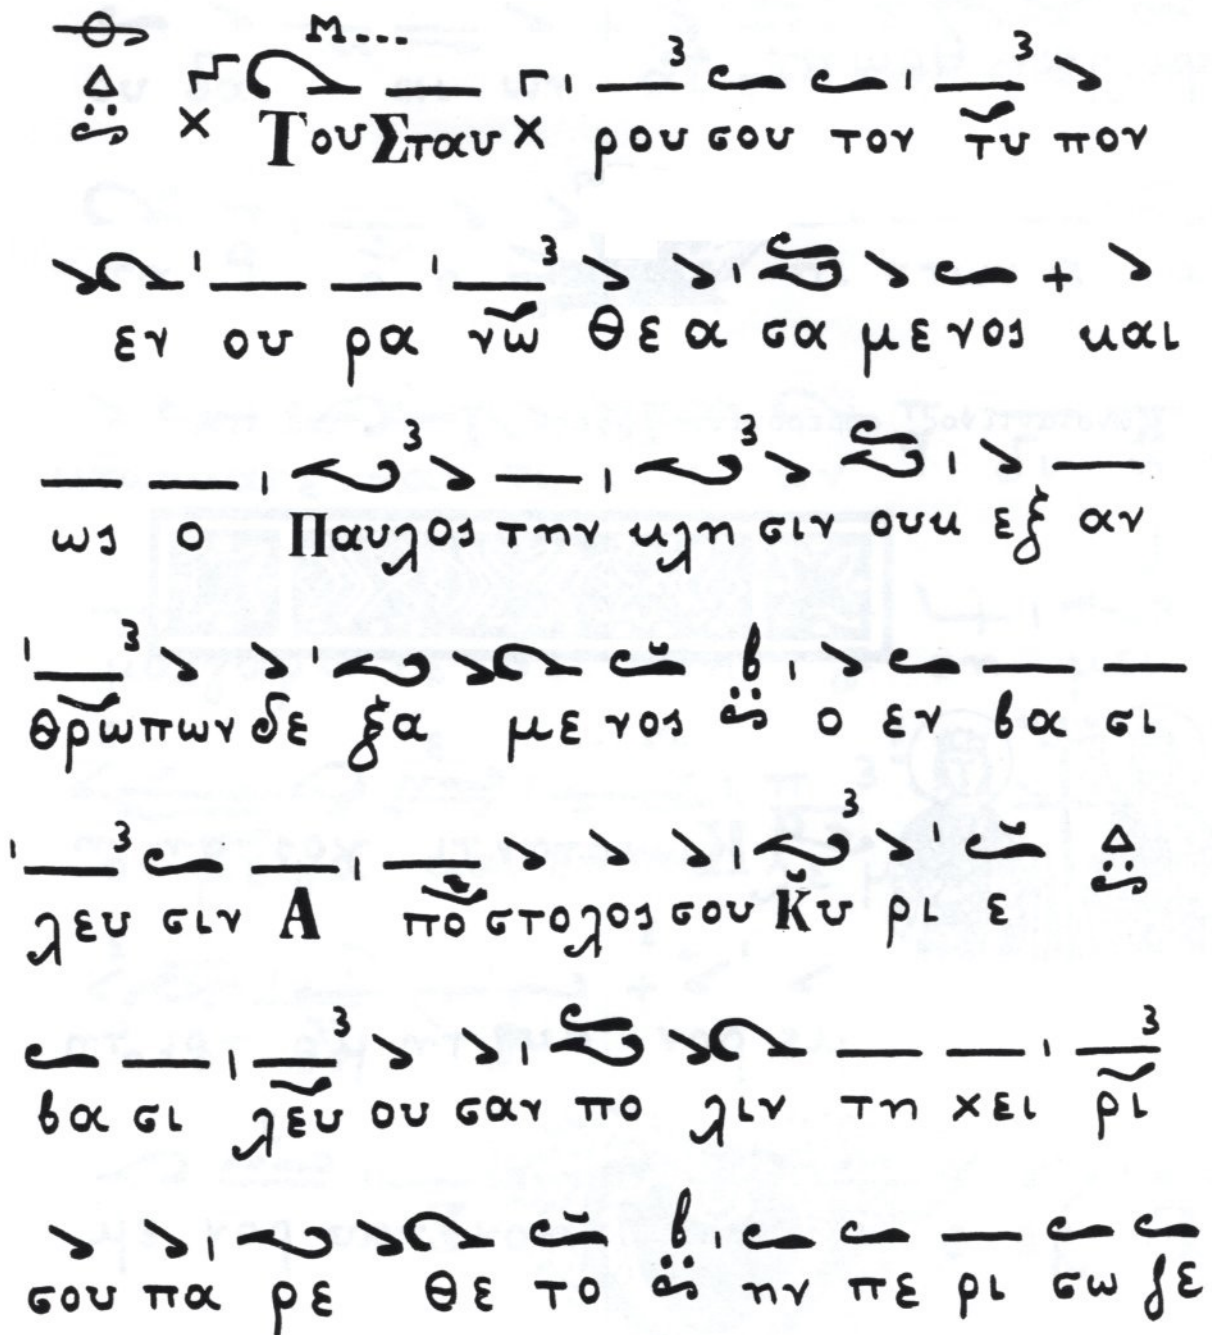 Μ...
Δ Χ Του Σταυ Χ ρου σου τον τυ πον
εν ου ρα νω θε α σα με νος και
ως ο Παυλος την κλη σιν ουκ εξ αν
θρωπων δε ξα με νος β ο εν βα σι
λευ σιν Α πο στολος σου Κυ ρι ε Δ
βα σι λευ ου σαν πο λιν τη χει ρι
σου πα ρε θε το β ην πε ρι σω ζε